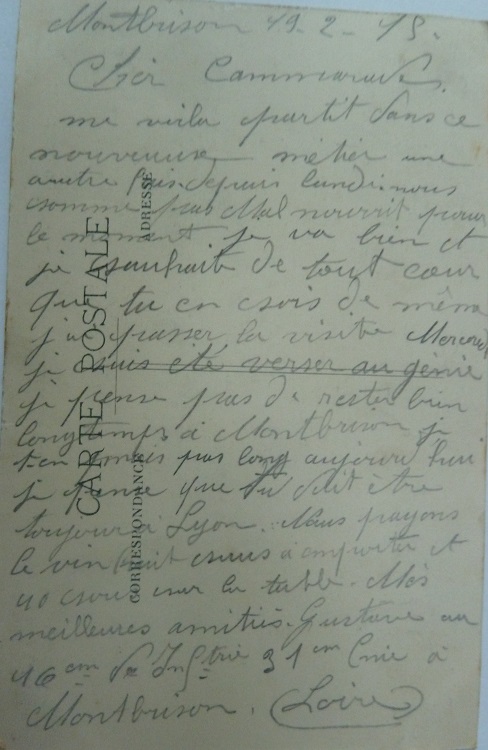 Montbrison 19-2-15.
Cher Cammarade,
me voila partit dans ce
nouveuse métier une
autre fois depuis lundi nous
somme pas Mal nourrit pour
le moment je va bien et
je souhaite de tout cœur
que tu en sois de même
j'ai passer la visite Mercredi
je suis eté verser au génie
je pense pas de rester bien
longtemps à Montbrison je
t'en mets pas long aujourd'hui
je pense que tu doit être
toujour à Lyon. Nous payons
le vin huit sous à emporter et
40 sous sur la table. Mes
meilleures amitiés. Gustave au
16em De Inftrie 31em Cnie à
Montbrison. (Loire)
CARTE POSTALE
CORRESPONDANCE
ADRESSE